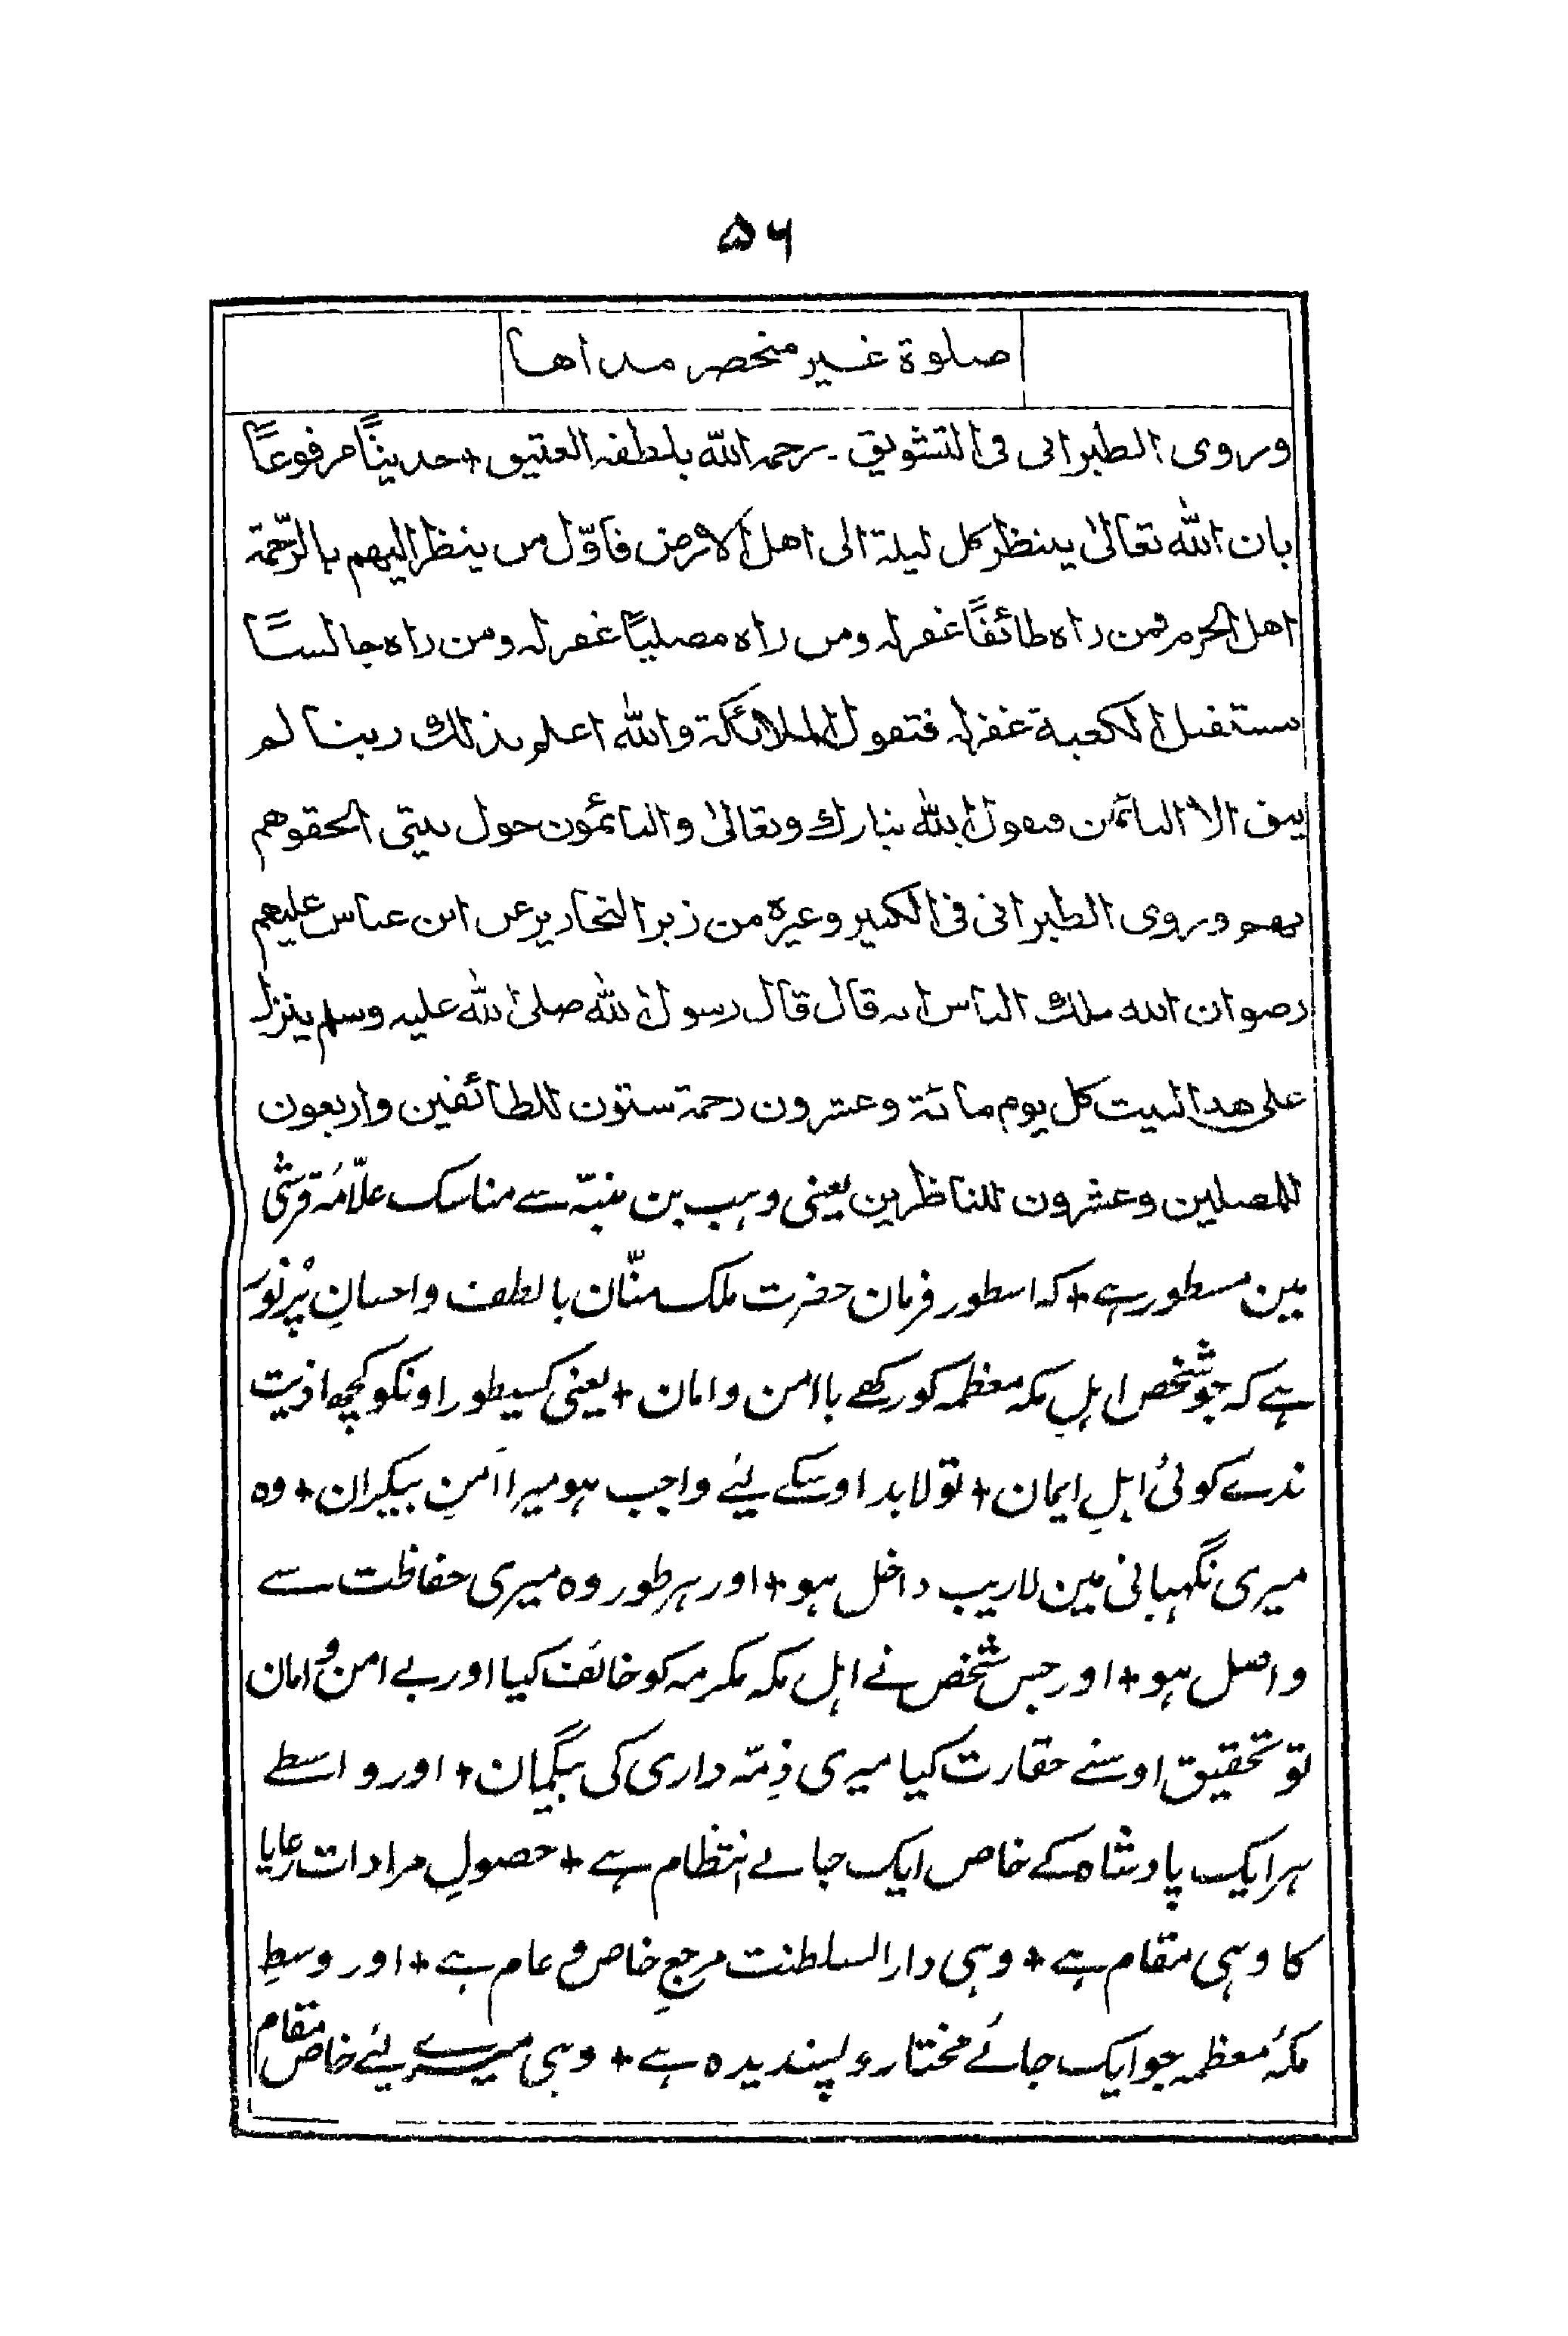 ۵۶
صلوة غير منحصر مداها
وروى الطبرانى فى التشويق ـ رحمه الله بلطفه العتيق + حديثًا مرفوعًا
بان الله تعالىٰ ينظر كل ليلة الى اهل الارض فاوّل من ينظر اليهم بالرّحمة
اهل الحرم فمن راه طائفًا غفرله ومن راه مصليًا غفرله ومن راه جالسًا
مستقبل الكعبة غفرله فتقول الملائكة والله اعلم بذلك ربنا لم
يبق الا النائمن فيقول الله تبارك وتعالىٰ والنائمون حول بيتى الحقوهم
بهم وروى الطبرانى فى الكبير وغيره من زبر النحارير عن ابن عباس عليهم
رضوان الله ملك الناس انه قال قال رسول الله صلى الله عليه وسلم ينزل
على هذا البيت كل يوم مائة وعشرون رحمة ستون للطائفين واربعون
للمصلين وعشرون للناظرين یعنی وہب بن منبّہ سے مناسک علّامۂ قرشی
مین مسطور ہے + کہ اسطور فرمان حضرت ملک منّان با لطف و احسانِ پُرنور
ہے کہ جو شخص اہلِ مکہ معظمہ کو رکھے با امن و امان + یعنی کسیطور اونکو کچھ اذیت
ندے کوئی اہلِ ایمان + تو لابد اوسکے لئے واجب ہو میرا امنِ بیکران + وہ
میری نگہبانی مین لاریب داخل ہو + اور ہر طور وہ میری حفاظت سے
واصل ہو + اور جس شخص نے اہل مکہ مکرمہ کو خائف کیا اور بے امن و امان
تو تحقیق اوسنے حقارت کیا میری ذِمّہ داری کی بیگمان + اور واسطے
ہر ایک پادشاہ کے خاص ایک جائے انتظام ہے + حصولِ مرادات رعایا
کا وہی مقام ہے + وہی دار السلطنت مرجعِ خاص و عام ہے + اور وسطِ
مکۂ معظمہ جو ایک جائے مختار و پسندیدہ ہے + وہی میرے لئے خاص مقام